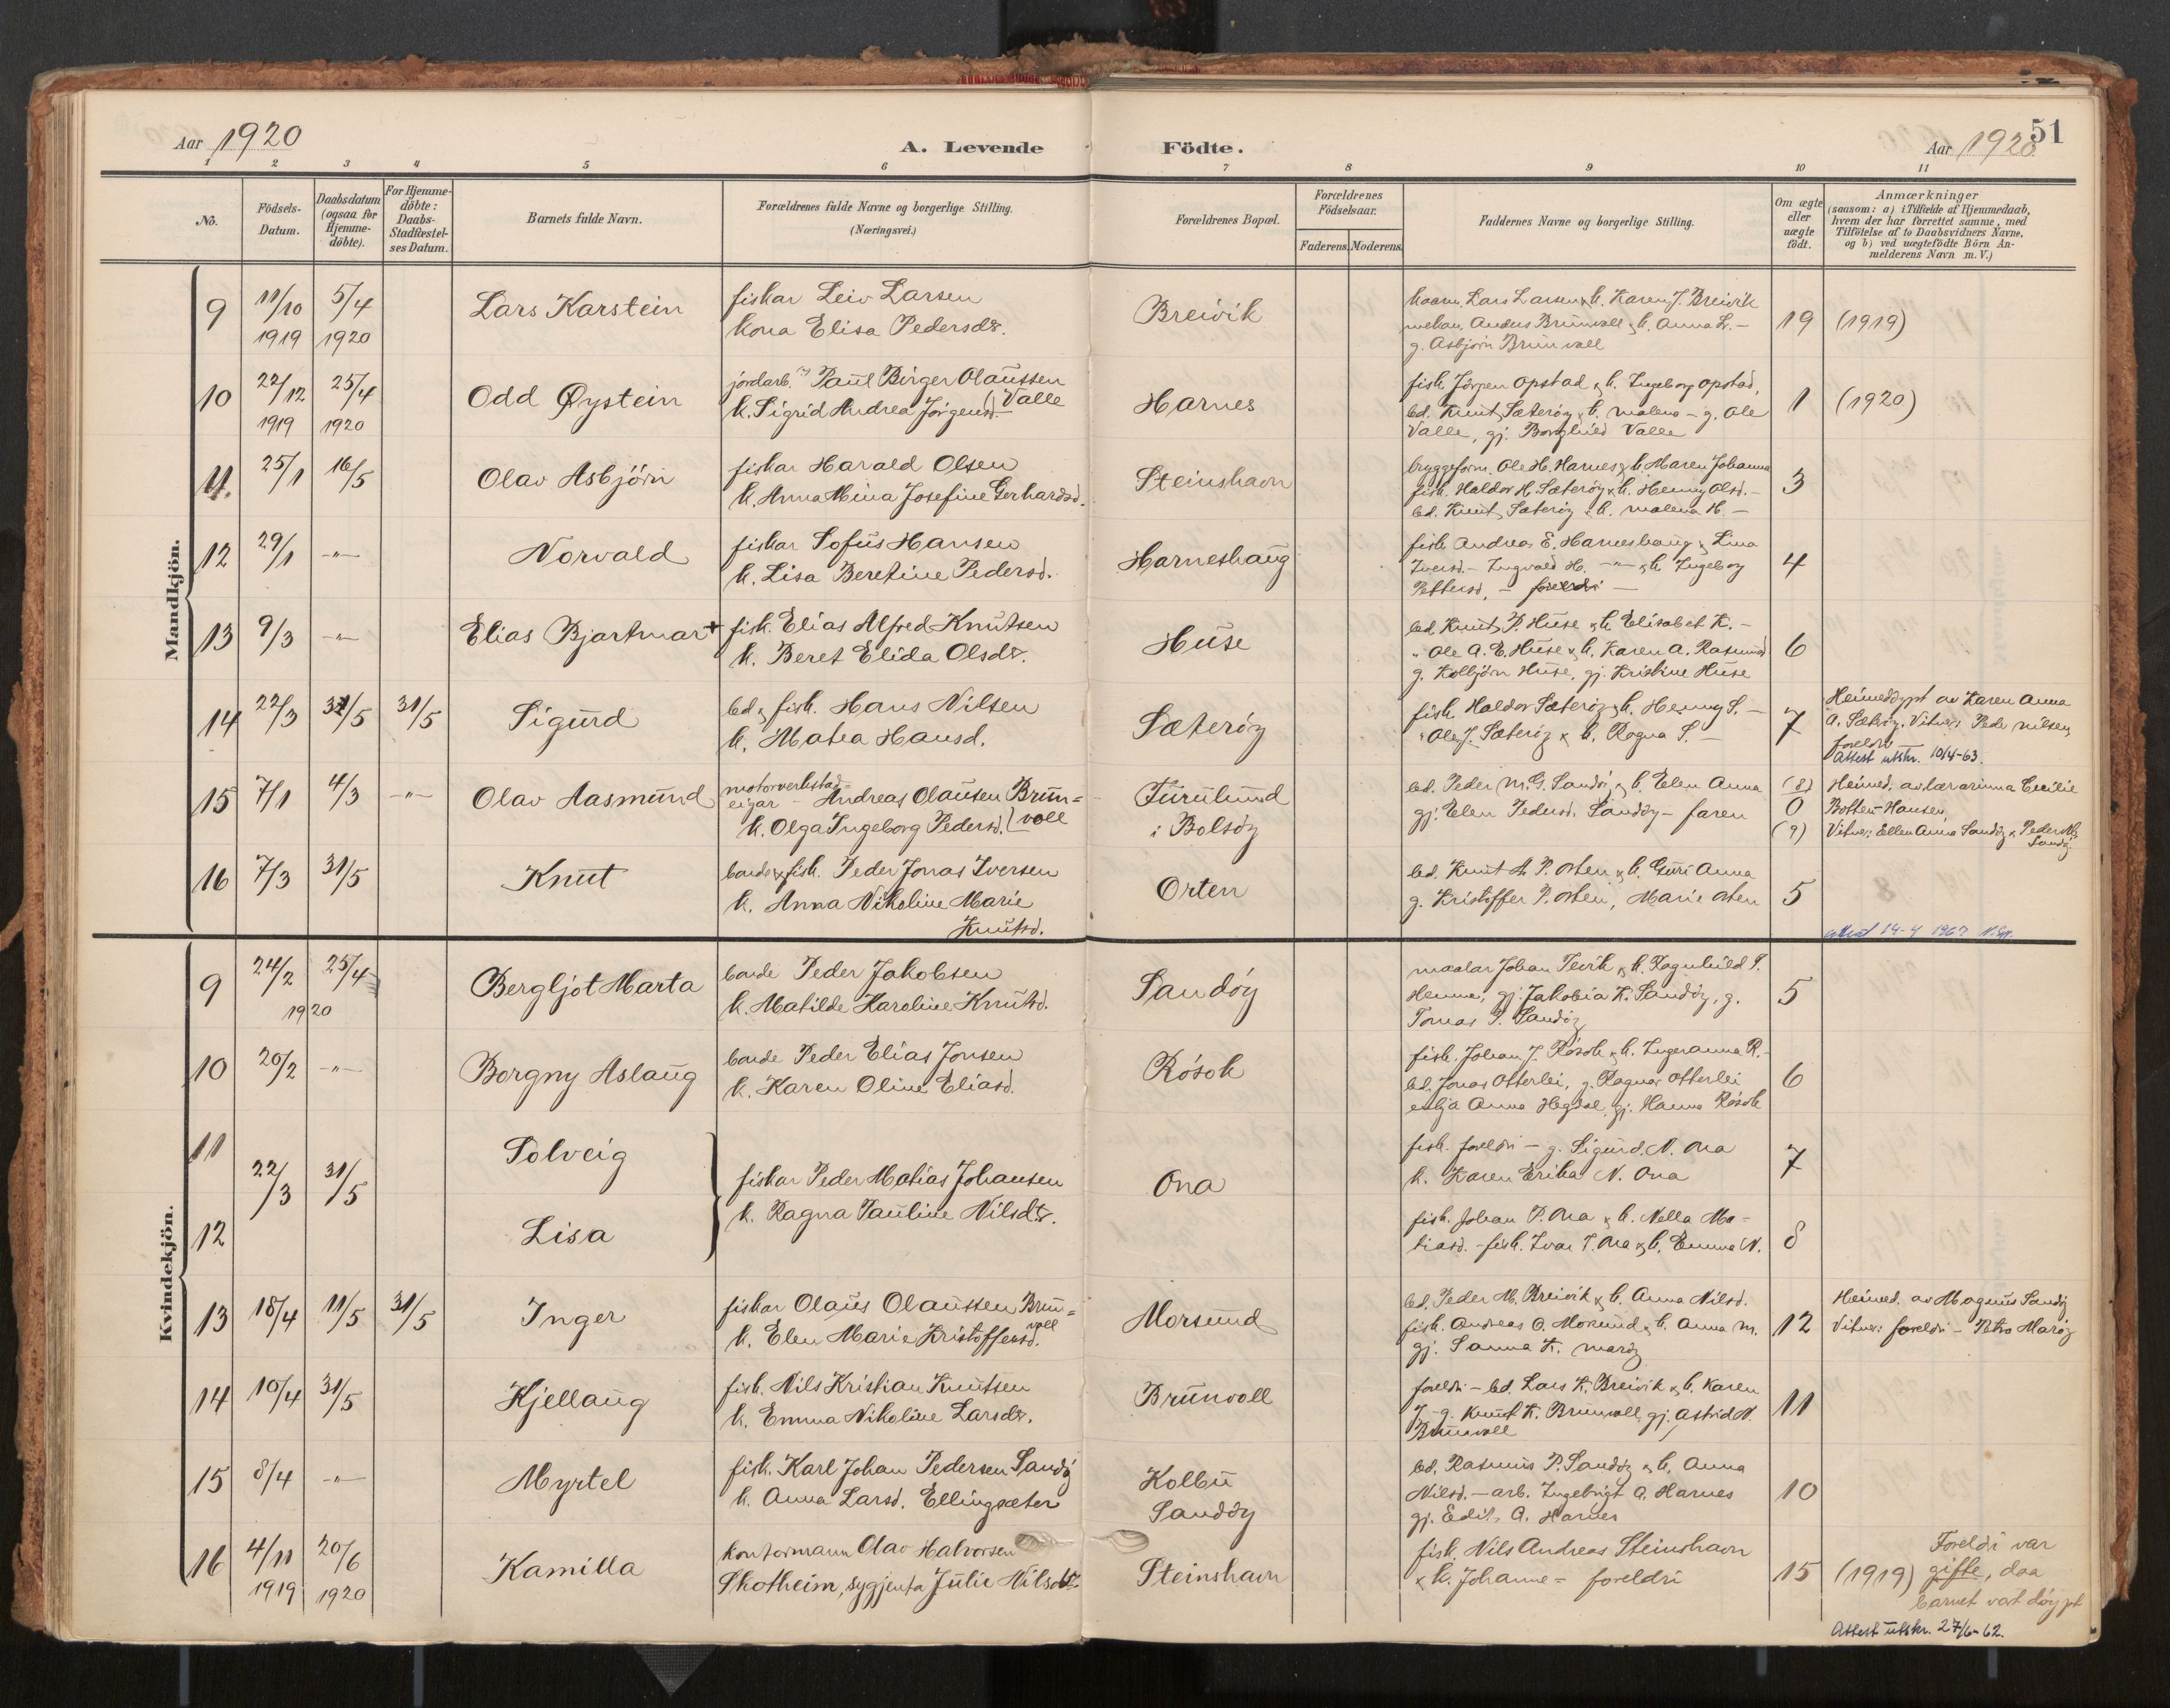 Aar 1920
A. Levende Födte.
51
Aar 1920
1 2 3 4 5 6 7 8 9 10 11
No.
Födsels-Datum.
Daabsdatum (ogsaa for Hjemme-döbte).
For Hjemme-döbte: Daabs-Stadfæstel-ses Datum.
Barnets fulde Navn.
Forældrenes fulde Navne og borgerlige Stilling.
(Næringsvei.)
Forældrenes Bopæl.
Forældrenes Födselsaar.
Faderens. Moderens.
Faddernes Navne og borgerlige Stilling.
Om ægte eller uægte födt.
Anmærkninger
(saasom: a) i Tilfælde af Hjemmedaab,
hvem der har forrettet samme, med
Tilföielse af to Daabsvidners Navne,
og b) ved uægtefödte Börn An-
melderens Navn m. V.)
Mandkjön.
9 11/10 1919 5/4 1920 Lars Karstein
fiskar Leiv Larsen
kona Elisa Pedersdr.
Breivik
Lars Larsen & k. Karen J. Breivik
mekan. Anders Brunvoll & k. Anna L. –
g. Asbjørn Brunvoll
19 (1919)
10 22/12 1919 25/4 1920 Odd Øystein
jordarb. Paul Birger Olaussen
k. Sigrid Andrea Jørgensd. (Valle
Harnes
fisk. Jörgen Opstad & k. Ingeborg Opstad,
bd. Knut Sæterøy & k. Malena – g. Ole
Valle, gj. Borghild Valle
1 (1920)
11. 25/1 16/5 Olav Asbjörn
fiskar Harald Olsen
k. Anna Mina Josefine Gerhardsd.
Steinshavn
bryggeform. Ole H. Harnes & k. Maren Johanna
fisk. Haldor H. Sæterøy & k. Henny Olsd. –
bd. Knut Sæterøy & k. Malena H. –
3
12 29/1 –"– Norvald
fiskar Sofus Hansen
k. Lisa Beretine Pedersd.
Harneshaug
fisk Andreas E. Harneshaug & Lina
Iversd. – Ingvald H. –"– & k. Ingeborg
Pettersd. – foreldri –
4
13 9/3 –"– Elias Bjartmar +
fisk. Elias Alfred Knutsen
k. Beret Elida Olsdr.
Huse
bd. Knut P. Huse & k. Elisabet K. –
" Ole A. E. Huse & k. Karen A. Rasmusd
g. Kolbjörn Huse, gj. Kristine Huse
6
14 22/3 31/5 31/5 Sigurd
bd. & fisk. Hans Nilsen
k. Matea Hansd.
Sæterøy
fisk. Haldor Sæterøy & k. Henny S. –
" Ole J. Sæterøy & k. Ragna S. –
7
Heimedöypt av Karen Anna
A. Sæterøy. Vitner: Peder Nilsen,
foreldri
Attest utskr. 10/4-63.
15 7/1 4/3 –"– Olav Aasmund
motorverkstad-
eigar – Andreas Olausen Brun=
k. Olga Ingeborg Pedersd. (voll
Furulund
i Bolsöy
bd. Peder M. G. Sandöy & k. Elen Anna
gj. Elen Pedersd. Sandöy – faren
(8)
0
(9)
Heimed. av lærarinna Cecilie
Botten-Hansen,
Vitner: Ellen Anna Sandöy & Peder M.
Sandöy
16 7/3 31/5 Knut
bonde & fisk. Peder Jonas Iversen
k. Anna Nikoline Marie
Knutsd.
Orten
bd. Knut A. P. Orten & k. Guri Anna
g. Kristoffer P. Orten, Marie Orten
5
14-4 1967
Kvindekjön.
9 24/2 25/4 1920 Bergljot Marta
bonde Peder Jakobsen
k. Matilde Karoline Knutsd.
Sandöy
maalar Johan Tevik & k. Ragnhild T.
gj. Jakobia K. Sandöy, g.
Tomas P. Sandöy
5
10 20/2 –"– Borgny Aslaug
bonde Peder Elias Jonsen
k. Karen Oline Eliasd.
Rösok
fisk. Johan J. Rösok & k. Ingeranna R. –
bd. Jonas Otterlei, g. Ragnar Otterlei
enkja Anna Hegdal, gj. Hanna Rösok
6
11 22/3 31/5 Solveig
12 Lisa
fiskar Peder Matias Johansen
k. Ragna Pauline Nilsdtr.
Ona
fisk. foreldri – g. Sigurd N. Ona
k. Karen Erika N. Ona
7
fisk. Johan P. Ona & k. Nella Ma-
tiasd. – fisk. Ivar T. Ona & k. Emma N.
8
13 18/4 11/5 31/5 Inger
fiskar Olaus Olaussen Brun=
voll
k. Elen Marie Kristoffersd.
Morsund
bd. Peder M. Breivik & k. Anna Nilsd.
fisk. Andreas O. Morsund & k. Anna M.
gj. Sanna K. Maröy
12
Heimed. av Magnus Sandöy
Vitner: foreldri – Petra Maröy
14 10/4 31/5 Kjellaug
fisk. Nils Kristian Knutsen
k. Emma Nikoline Larsdr.
Brunvoll
foreldri – bd. Lars K. Breivik & k. Karen
J. – g. Knut K. Brunvoll, gj. Astrid N.
Brunvoll
11
15 8/4 –"– Myrtel
fisk. Karl Johan Pedersen Sandöy
k. Anna Larsd. Ellingsæter
Kolbu
Sandöy
bd. Rasmus P. Sandöy & k. Anna
Nilsd. – arb. Ingebrigt A. Harnes
gj. Edit A. Harnes
10
16 4/11 1919 20/6 1920 Kamilla
Kontormann Olav Halvorsen
Skotheim, sygjenta Julie Nilsdtr
Steinshavn
fisk. Nils Andreas Steinshavn
& k. Johanne = foreldri
15 (1919)
Foreldri var
gifte, daa
barnet vart döypt
Attest utskr. 27/6-62.